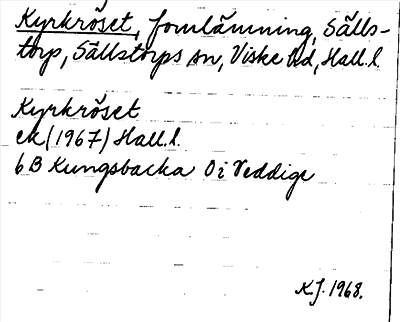 Kyrkröset, fornlämning, Sälls-
torp, Sällstorps sn, Viske hd, Hall.l.
Kyrkröset
ek (1967) Hall.l.
6B Kungsbacka 0i Veddige
K.J. 1968.